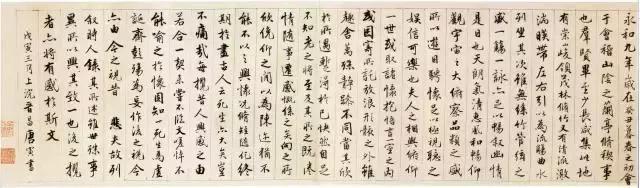 永和九年歲在癸丑暮春之初會
于會稽山陰之蘭亭脩禊事
也群賢畢至少長咸集此地
有崇峻領茂林脩竹又有清流激
湍暎帶左右引以為流觴曲水
列坐其次雖無絲竹管絃之
盛一觴一詠亦足以暢敘幽情
是日也天朗氣清惠風和暢仰
觀宇宙之大俯察品類之盛
所以遊目騁懷足以極視聽之
娛信可樂也夫人之相與俯仰
一世或取諸懷抱悟言一室之內
或因寄所託放浪形骸之外雖
趣舍萬殊靜躁不同當其欣
於所遇暫得於己快然自足
不知老之將至及其所之既惓
情隨事遷感慨係之矣向之所
欣俛仰之間以為陳迹猶不
能不以之興懷況脩短隨化終
期於盡古人云死生亦大矣豈
不痛哉每攬昔人興感之由
若合一契未嘗不臨文嗟悼不
能喻之於懷固知一死生為虛
誕齊彭殤為妄作後之視今
亦由今之視昔悲夫故列
敘時人錄其所述雖世殊事
異所以興懷其致一也後之攬
者亦將有感於斯文
戊寅三月上浣晉昌唐寅書